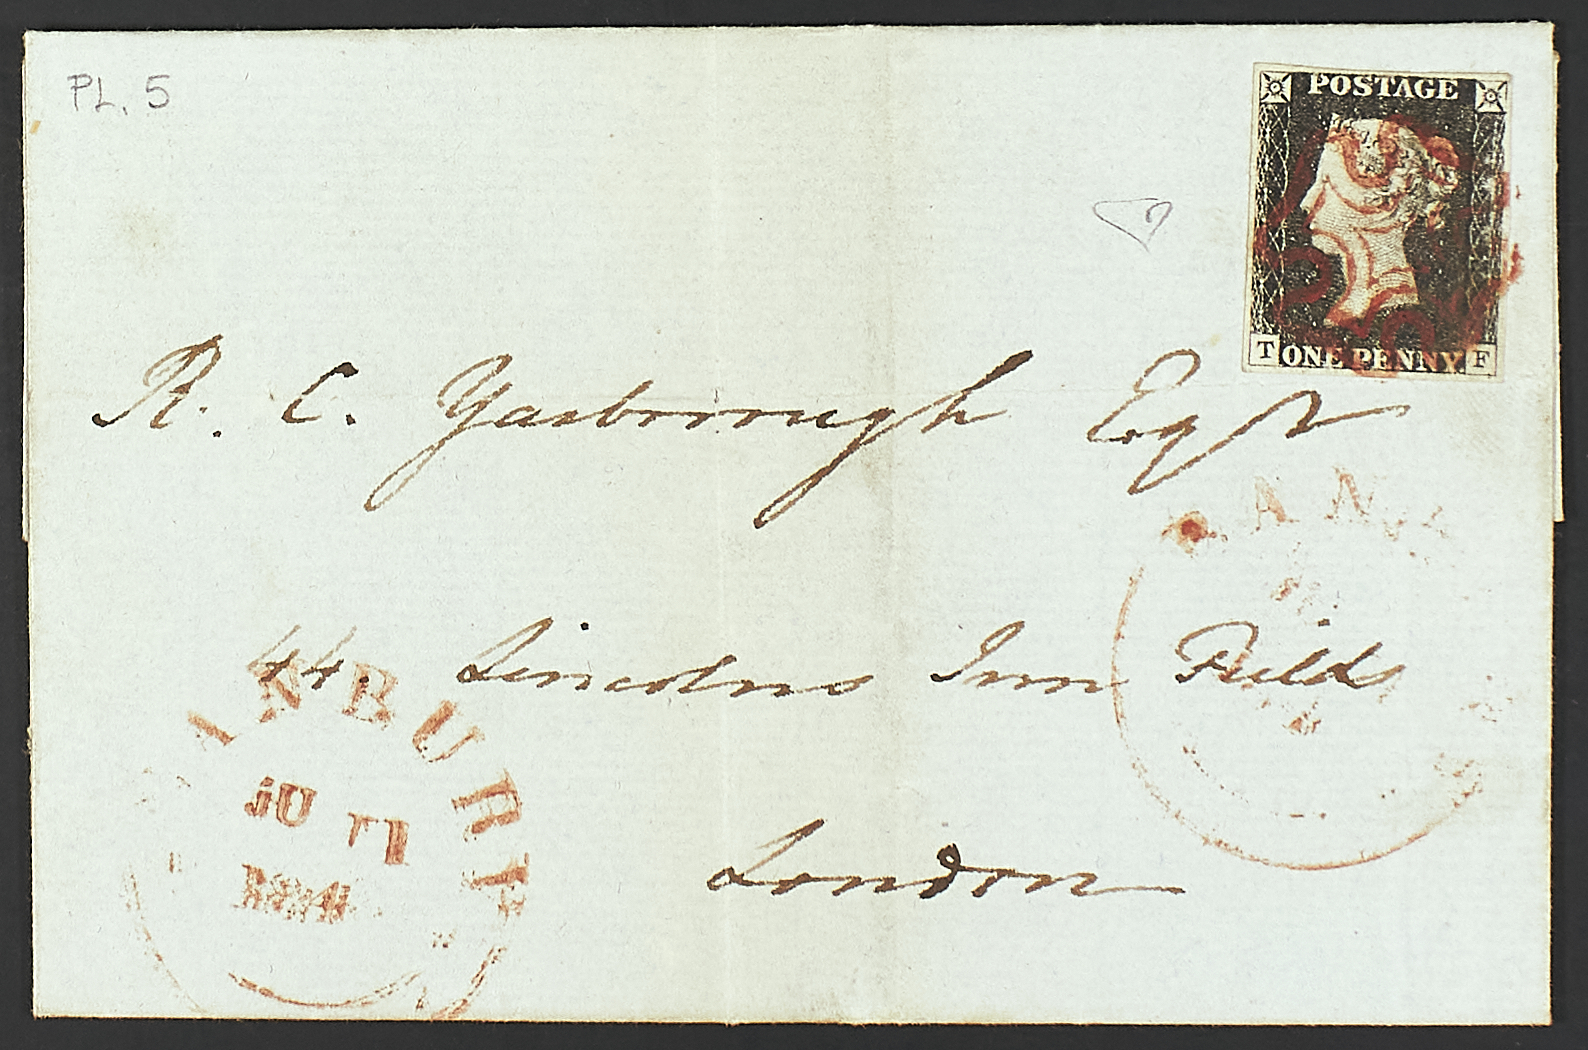 PL. 5
POSTAGE
T ONE PENNY F
R. C. Yarborough Esqr
44. Lincolns Inn Fields
London
ANBURY
JU 11
BAN